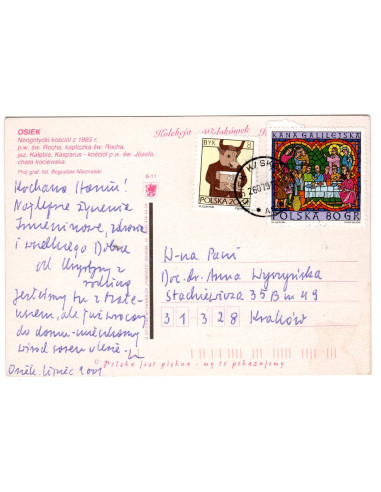 OSIEK
Neogotycki kościół z 1885 r.
p.w. św. Rocha, kapliczka św. Rocha,
jez. Kałębie, Kasparus - kościół p.w. św. Józefa,
chata kociewska.
Proj graf. fot. Bogusław
8-11
Kolekcja Widokówek
BYK
POLSKA 20 GR
KANA GALILEJSKA
POLSKA 80 GR
Kochana Haniu!
Najlepsze życzenia
Imieninowe, zdrowia
i wszelkiego Dobra
od Krystyny z
rodziną
Jesteśmy tu z
ale już wracamy
do domu
wśród
Osiek. lipiec 2001
W-na Pani
Doc. dr. Anna Wyrzyńska
Stachiewicza 35 B m 49
31 328 Kraków
© Polska jest piękna - my to pokazujemy